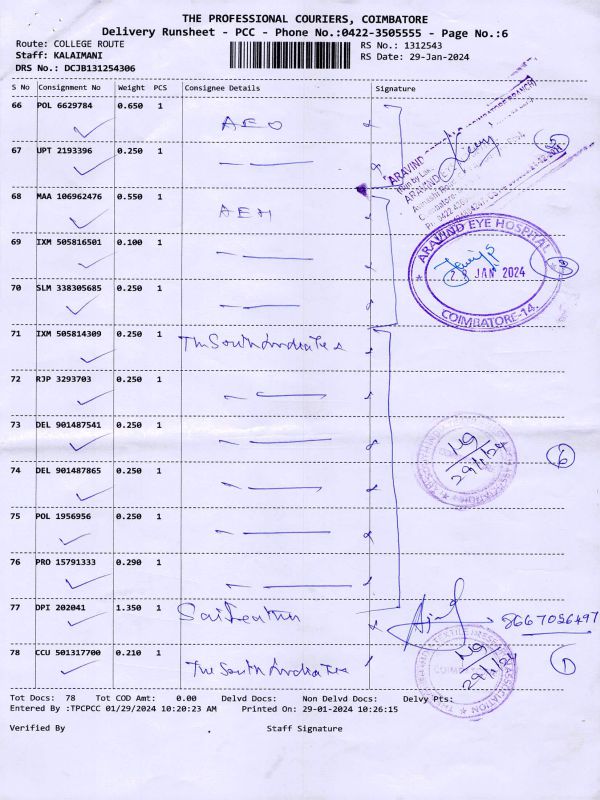 THE PROFESSIONAL COURIERS, COIMBATORE
Delivery Runsheet - PCC - Phone No.:0422-3505555 - Page No.:6
Route: COLLEGE ROUTE
RS No.: 1312543
Staff: KALAIMANI
RS Date: 29-Jan-2024
DRS No.: DCJB131254306
S No Consignment No Weight PCS Consignee Details Signature
66 POL 6629784 0.650 1
AEO
67 UPT 2193396 0.250 1
68 MAA 106962476 0.550 1
AEH
69 IXM 505816501 0.100 1
ARAVIND EYE HOSPITAL
JAN 2024
COIMBATORE-14.
70 SLM 338305685 0.250 1
71 IXM 505814309 0.250 1
The South India Tex
72 RJP 3293703 0.250 1
73 DEL 901487541 0.250 1
29/1/24
6
74 DEL 901487865 0.250 1
75 POL 1956956 0.250 1
76 PRO 15791333 0.290 1
77 DPI 202041 1.350 1
8667056497
78 CCU 501317700 0.210 1
The South India Tex
29/1/24
1
Tot Docs: 78 Tot COD Amt: 0.00 Delvd Docs: Non Delvd Docs: Delvy Pts:
Entered By :TPCPCC 01/29/2024 10:20:23 AM Printed On: 29-01-2024 10:26:15
Verified By Staff Signature